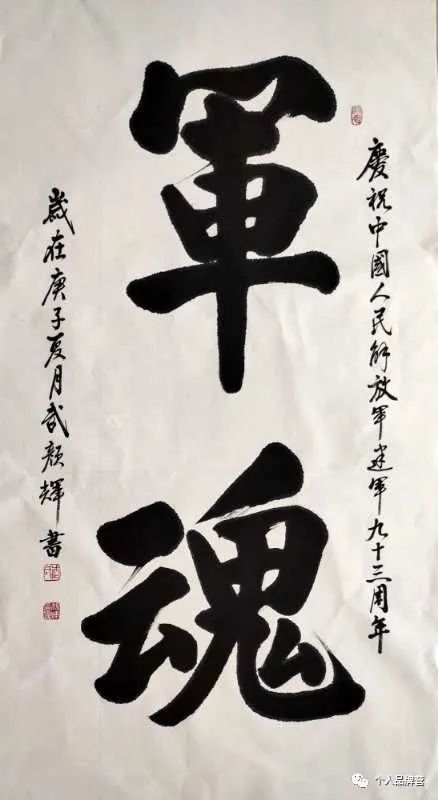 慶祝中國人民解放軍建軍九十三周年
軍魂
歲在庚子夏月武顏輝書
个人品牌荟